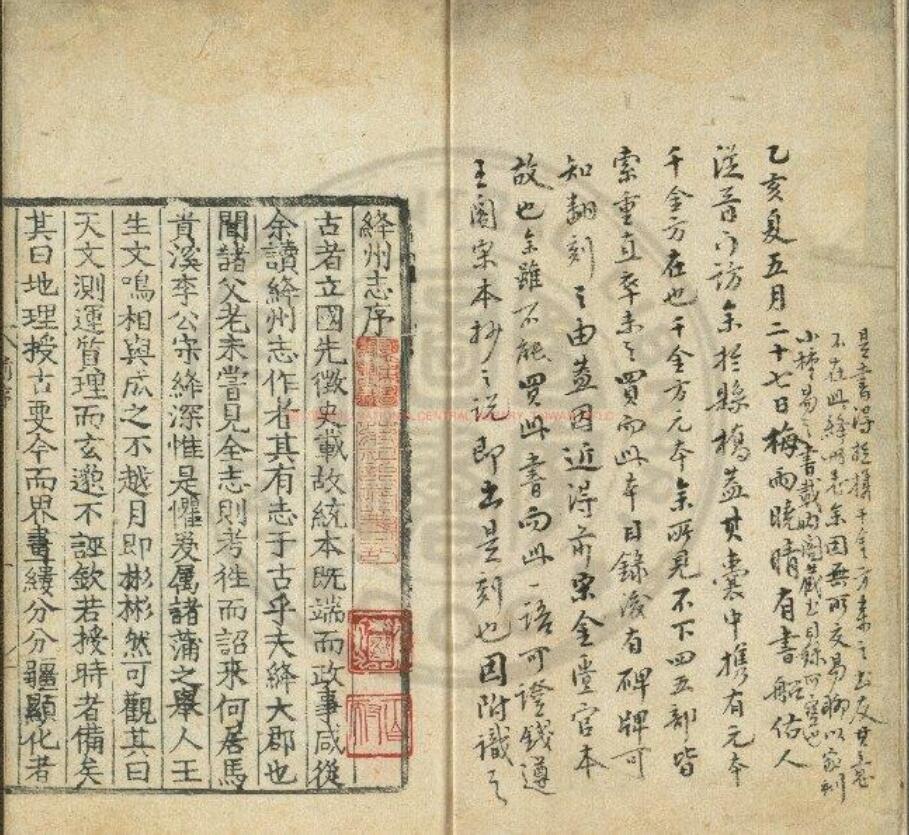 是書得於攜千金方來之書友其意
不在此絳州志余因無所交易聊以家刻
小種易之書載內閣藏書目錄可寶也
乙亥夏五月二十七日梅雨曉晴有書船估人
從昔門訪余於縣橋葢其囊中攜有元本
千金方在也千金方元本余所見不下四五部皆
索重直卒未之買而此本目錄後有碑牌可
知翻刻之由葢因近得前宋金堂官本
故也余雖不能買此書而此一語可證錢遵
王閣宋本抄之說即出是刻也因附識之
絳州志序
古者立國先徵史載故統本既端而政事咸從
余讀絳州志作者其有志于古乎夫絳大郡也
聞諸父老未嘗見全志則考徃而詔來何居馬
貢溪李公守絳深惟是懼爰属諸蒲之舉人王
生文鳴相與成之不越月即彬彬然可觀其曰
天文測運質理而玄邈不誣欽若授時者備矣
其曰地理授古要今而界畫縷分分疆顯化者